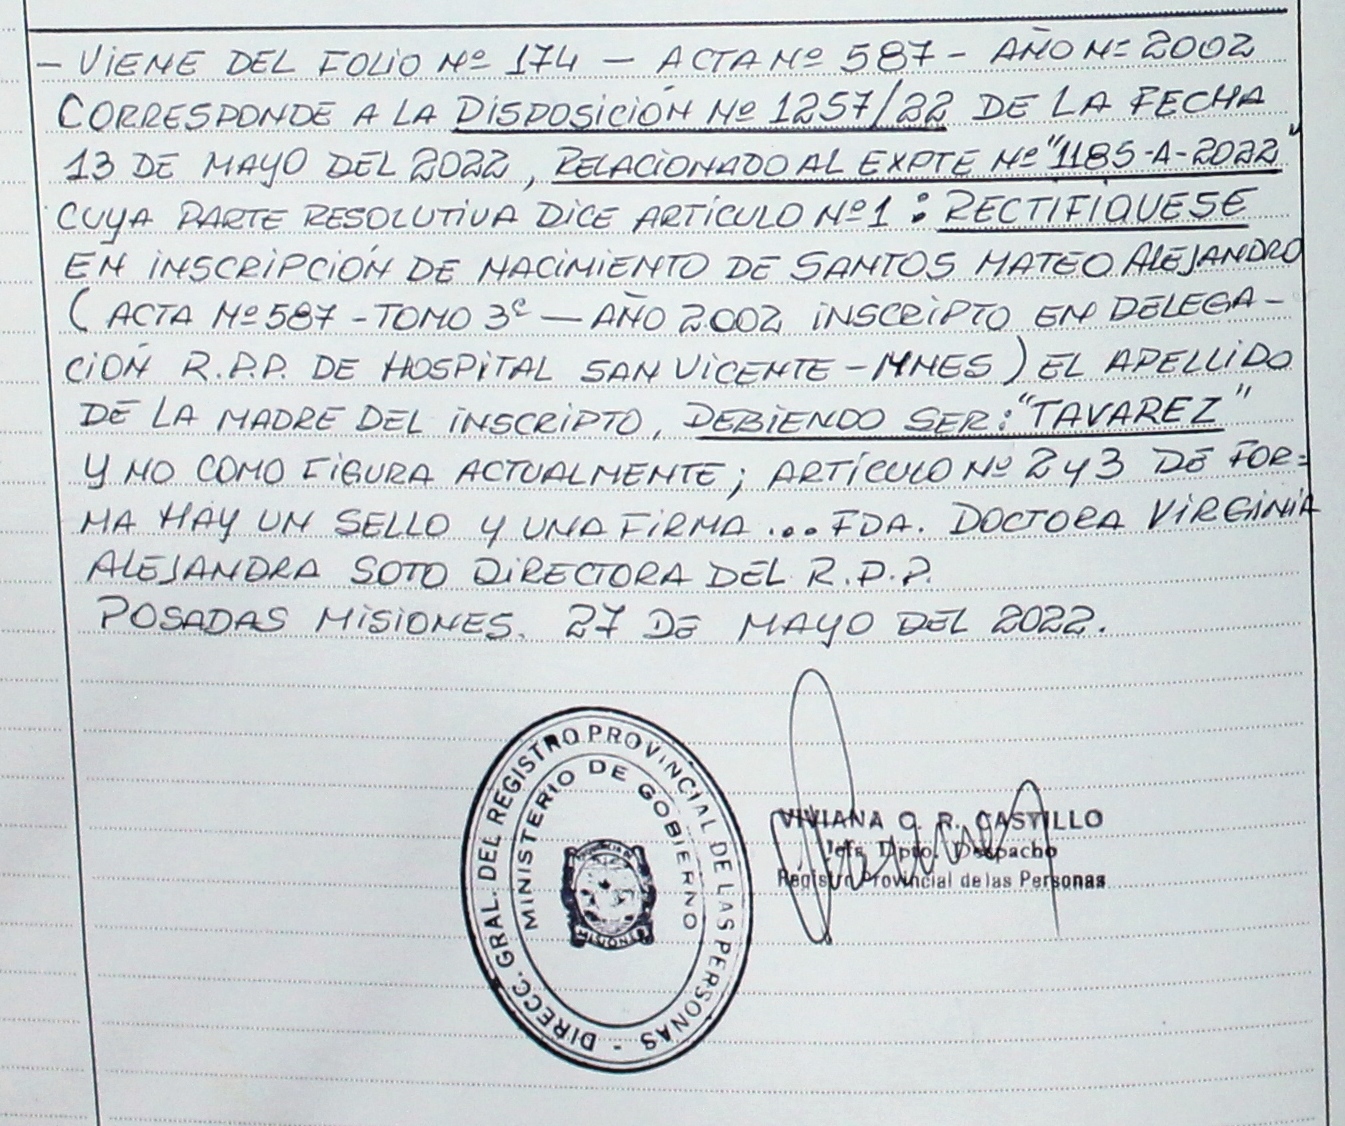 - VIENE DEL FOLIO Nº 174 - ACTA Nº 587 - AÑO Nº 2002
CORRESPONDE A LA DISPOSICIÓN Nº 1257/22 DE LA FECHA
13 DE MAYO DEL 2022, RELACIONADO AL EXPTE Nº "1185-A-2022"
CUYA PARTE RESOLUTIVA DICE ARTÍCULO Nº 1 : RECTIFIQUESE
EN INSCRIPCIÓN DE NACIMIENTO DE SANTOS MATEO ALEJANDRO
( ACTA Nº 587 - TOMO 3º - AÑO 2002 INSCRIPTO EN DELEGA-
CIÓN R.P.P. DE HOSPITAL SAN VICENTE - MNES ) EL APELLIDO
DE LA MADRE DEL INSCRIPTO, DEBIENDO SER: "TAVAREZ"
Y NO COMO FIGURA ACTUALMENTE; ARTÍCULO Nº 2 y 3 DE FOR=
MA HAY UN SELLO Y UNA FIRMA ... FDA. DOCTORA VIRGINIA
ALEJANDRA SOTO DIRECTORA DEL R.P.P.
POSADAS MISIONES. 27 DE MAYO DEL 2022.
DIRECC. GRAL. DEL REGISTRO PROVINCIAL DE LAS PERSONAS -
MINISTERIO DE GOBIERNO
MISIONES
VIVIANA O. R. CASTILLO
Jefa Dpto. Despacho
Registro Provincial de las Personas